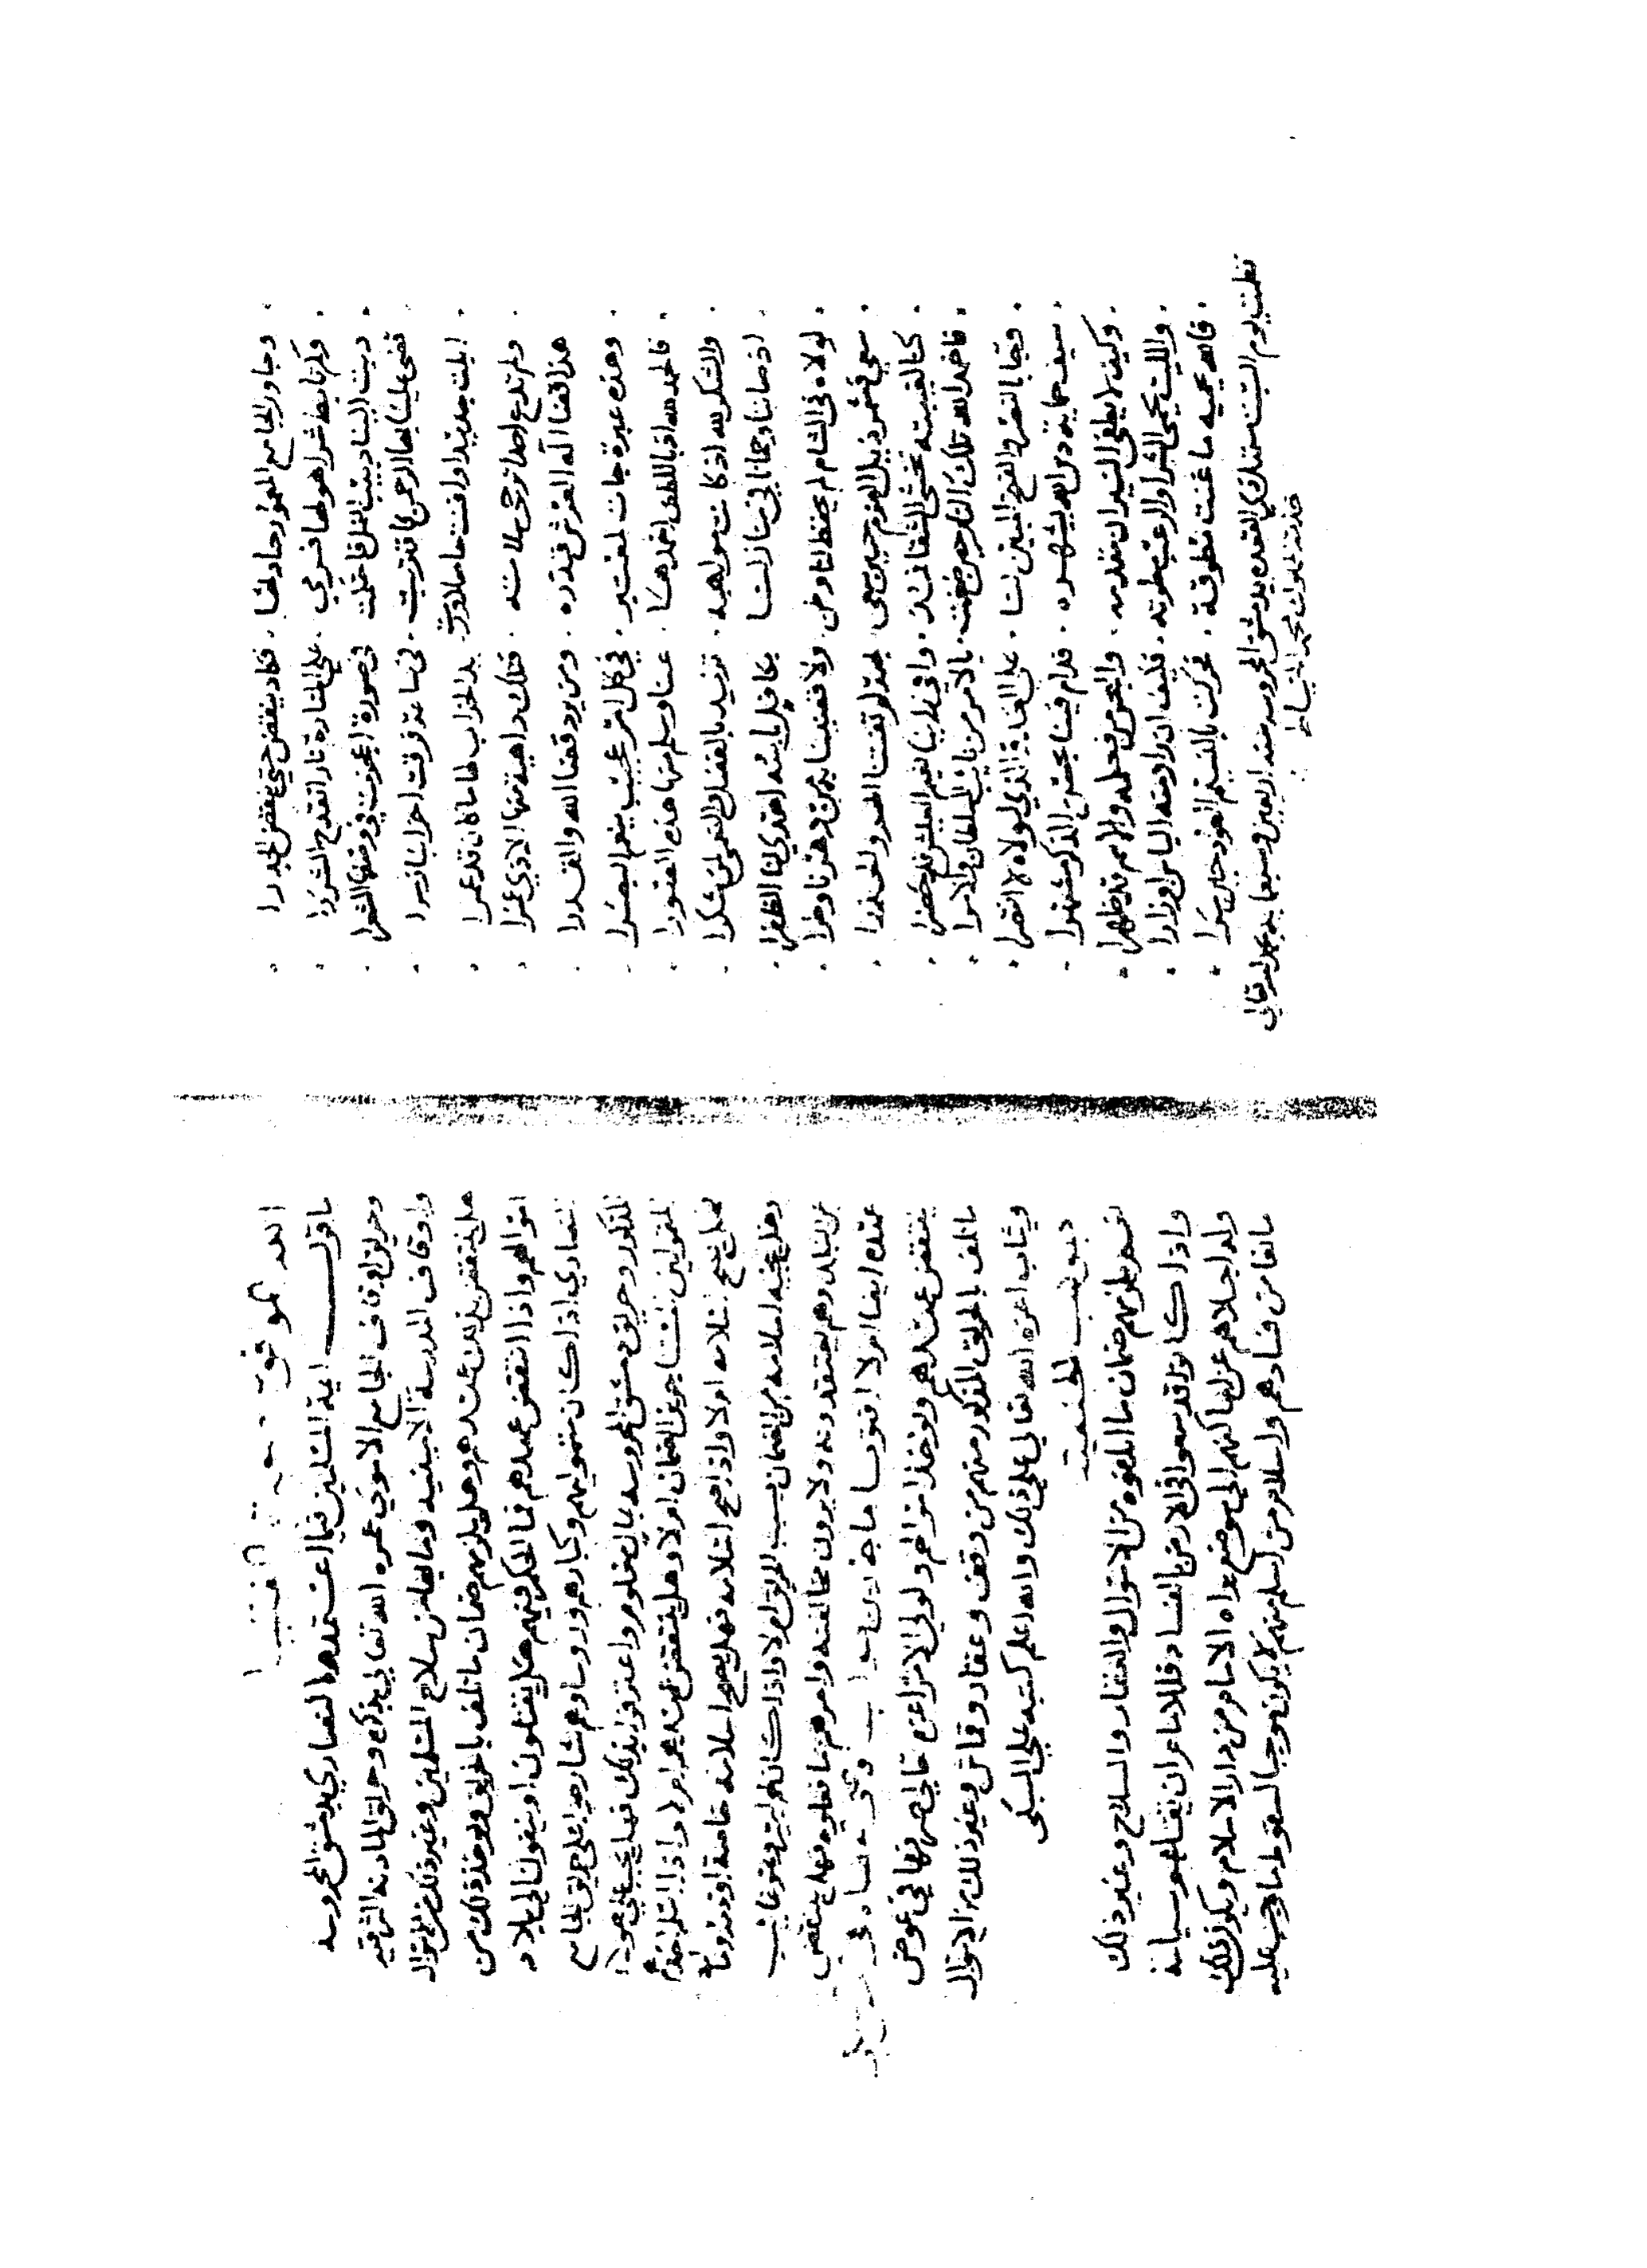 وجاور الجامع المعمور حاولها . فكاد ينقض حتى ينقض الجدرا
على المنارة نار تقدح الشررا
دبت الينا دبيب النمل في صورة اعجزت في وصفها الشعرا
في ساعة فرقت احزابنا زمرا
بيد الخراب طالما كان قد عمرا
ولم تدع احدا . فتلك داهية منها الاذى غمرا
هذا قضا اله العرش قدره . ومن يرد قضا الله والقدرا
وهذه عبرة جات لمعتبر . في كل امر عجيب ينعم البصرا
فالحمد لله اذ باللطف اخمدها . عنا وسلم منها هذه الصورا
والشكر لله اذ كانت مواهبه . تزيد بالفضل والنعمى لمن شكرا
اذ صاننا وحمانا في منازلنا بكافل باسه اهدى لنا الظفرا
لولاه في الشام لم يحفظ لنا وطن . ولا قضينا بها من دهرنا وطرا
سعى فشمر ذيل العزم حين سعى . بهمة
كنا لغيبته نخشى الشقا فمذ . وافى راينا نعيم العيش قد حضرا
فاخمد الله تلك النار حين طغت . بالامر من نايب السلطان اذ امرا
وجانا النصر والفتح المبين لنا . على العداة الذي لولاه ما انتصرا
سيف حماية دين الله يشهره . فدام فينا بحق الله مشتهرا
وكيف لا يطفي النيران مقدمه . والبحر من فعله والامر قد ظهرا
والليث يحمي الشرا والرعب سطوته . فكيف ان زاد منه الباس او زارا
فالله يحميه ما غنت مطوقة . تحركت بالنسيم الغض حين سرا
نظمت يوم السبت مستهل ذي القعدة بدمشق المحروسة سنة اربعين وسبعماية بحمد الله تعالى
خدمة مملوك محمد الخياط
الفتيا
ما قول ايمة المسلمين فيما اعتمده النصارى بدمشق المحروسة
وحريق اوقاف الجامع الاموي عمره الله تعالى بذكره وحريق الماذنة الشرقية
واوقاف المدرسة الامينية وما بها من سلاح المسلمين وغير ذلك من الاموال
هل ينتقض بذلك عهدهم وهل يلزمهم ضمان ما تلف بالحريق ويوخذ ذلك من
اموالهم واذا انتقض عهدهم فما الحكم فيهم هل يقتلون او ينفون الى بلاد
النصارى اذا كان متموليهم وكبارهم وروساوهم تشاوروا على حريق الجامع
المذكور وحريق دمشق المحروسة بمال معلوم واعترفوا بذلك فما يجب على هولا
المتمولين الضمان ام لا وهل ينتقض عهدهم ام لا واذا اسلم احدهم
فهل يصح اسلامه ام لا واذا صح اسلامه فهل يصح اسلامه خاصة او دونها
وهل ينجيه اسلامه من الضمان بسبب الحريق ام لا واذا كان لهم بترك وهو غايب
عن البلد وهم يعتقدونه ولا يرون مخالفته وامرهم بما فعلوه فهل ينتقض
عهده ايضا ام لا افتونا ماجورين
ينتقض عهدهم ويوخذ اموالهم ولولي الامر اعزه الله صرفها في عوض
ما تلف بالحريق المذكور منهم من وقف وعقار وقماش وغير ذلك من الاموال
ويثاب اعزه الله تعالى على ذلك والله اعلم كتبه علي السبكي
جواب الحنفية
نعم يلزمهم ضمان ما اتلفوه من الاموال والعقار والسلاح وغير ذلك
واذا كانوا قد سعوا في الارض الفساد فللامام ان يقتلهم سياسة
وله اجلاهم عن اماكنهم الى موضع يراه الامام من دار الاسلام ويكون ذلك
مانعا من فسادهم واسلام من اسلم منهم لا يكون موجبا لسقوط ما وجب عليه